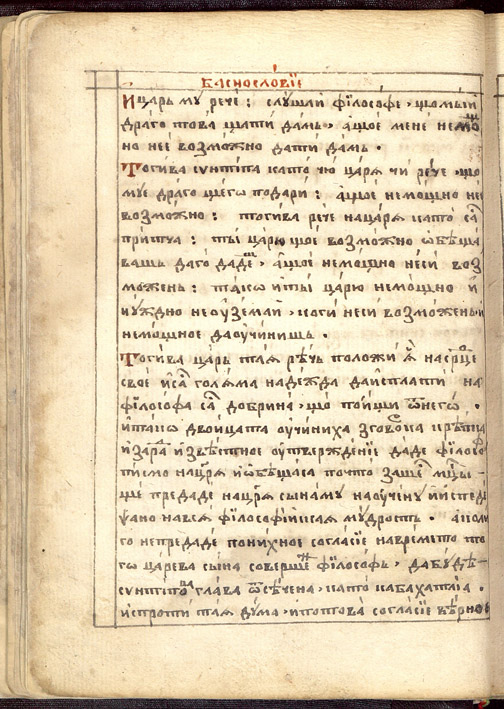 баснословїе
И царь му рече: слꙋшай философе, що мый
драго това ща ти дамь, аще мене немощ
но неє возможно дати дамь.
Тогива сѵнтїпа като чю царѧ чи рече, що
мꙋ є драго ще го подари: аще немощно не
возможно: тогива рече на царѧ като сас
притча: ты царю що є возможно ѡбеща
вашь да го дадешь, аще немощно неси воз
можень: тако и ты царю немощно и
нꙋждно не ꙋземай, коги неси возможень и
немощное да ꙋчинишь.
Тогива царь таѧ речь положи ѧ на срⷣце
свое и сас голѧма надежда да исплати на
философа сас добрина, що поищи ѿ него.
и тако двоицата ꙋчиниха зговорка крѣпка
и за ради извѣстное ꙋтверждение даде филосоѳ
писмо на царѧ и ѡбѣщасѧ почто за шесть мцы
ще предаде на царѧ сына мꙋ наꙋчень и испед
ѱано на всѧ философийская мꙋдрость. ако ли
го не предаде по нихное согласїе на времѧто то
го царева сына совершень философь, да бꙋде
сѵнтїпова глава ѿсечена, като кабахатлїа.
испроти таѧ дꙋма, и потова согласїе верно е